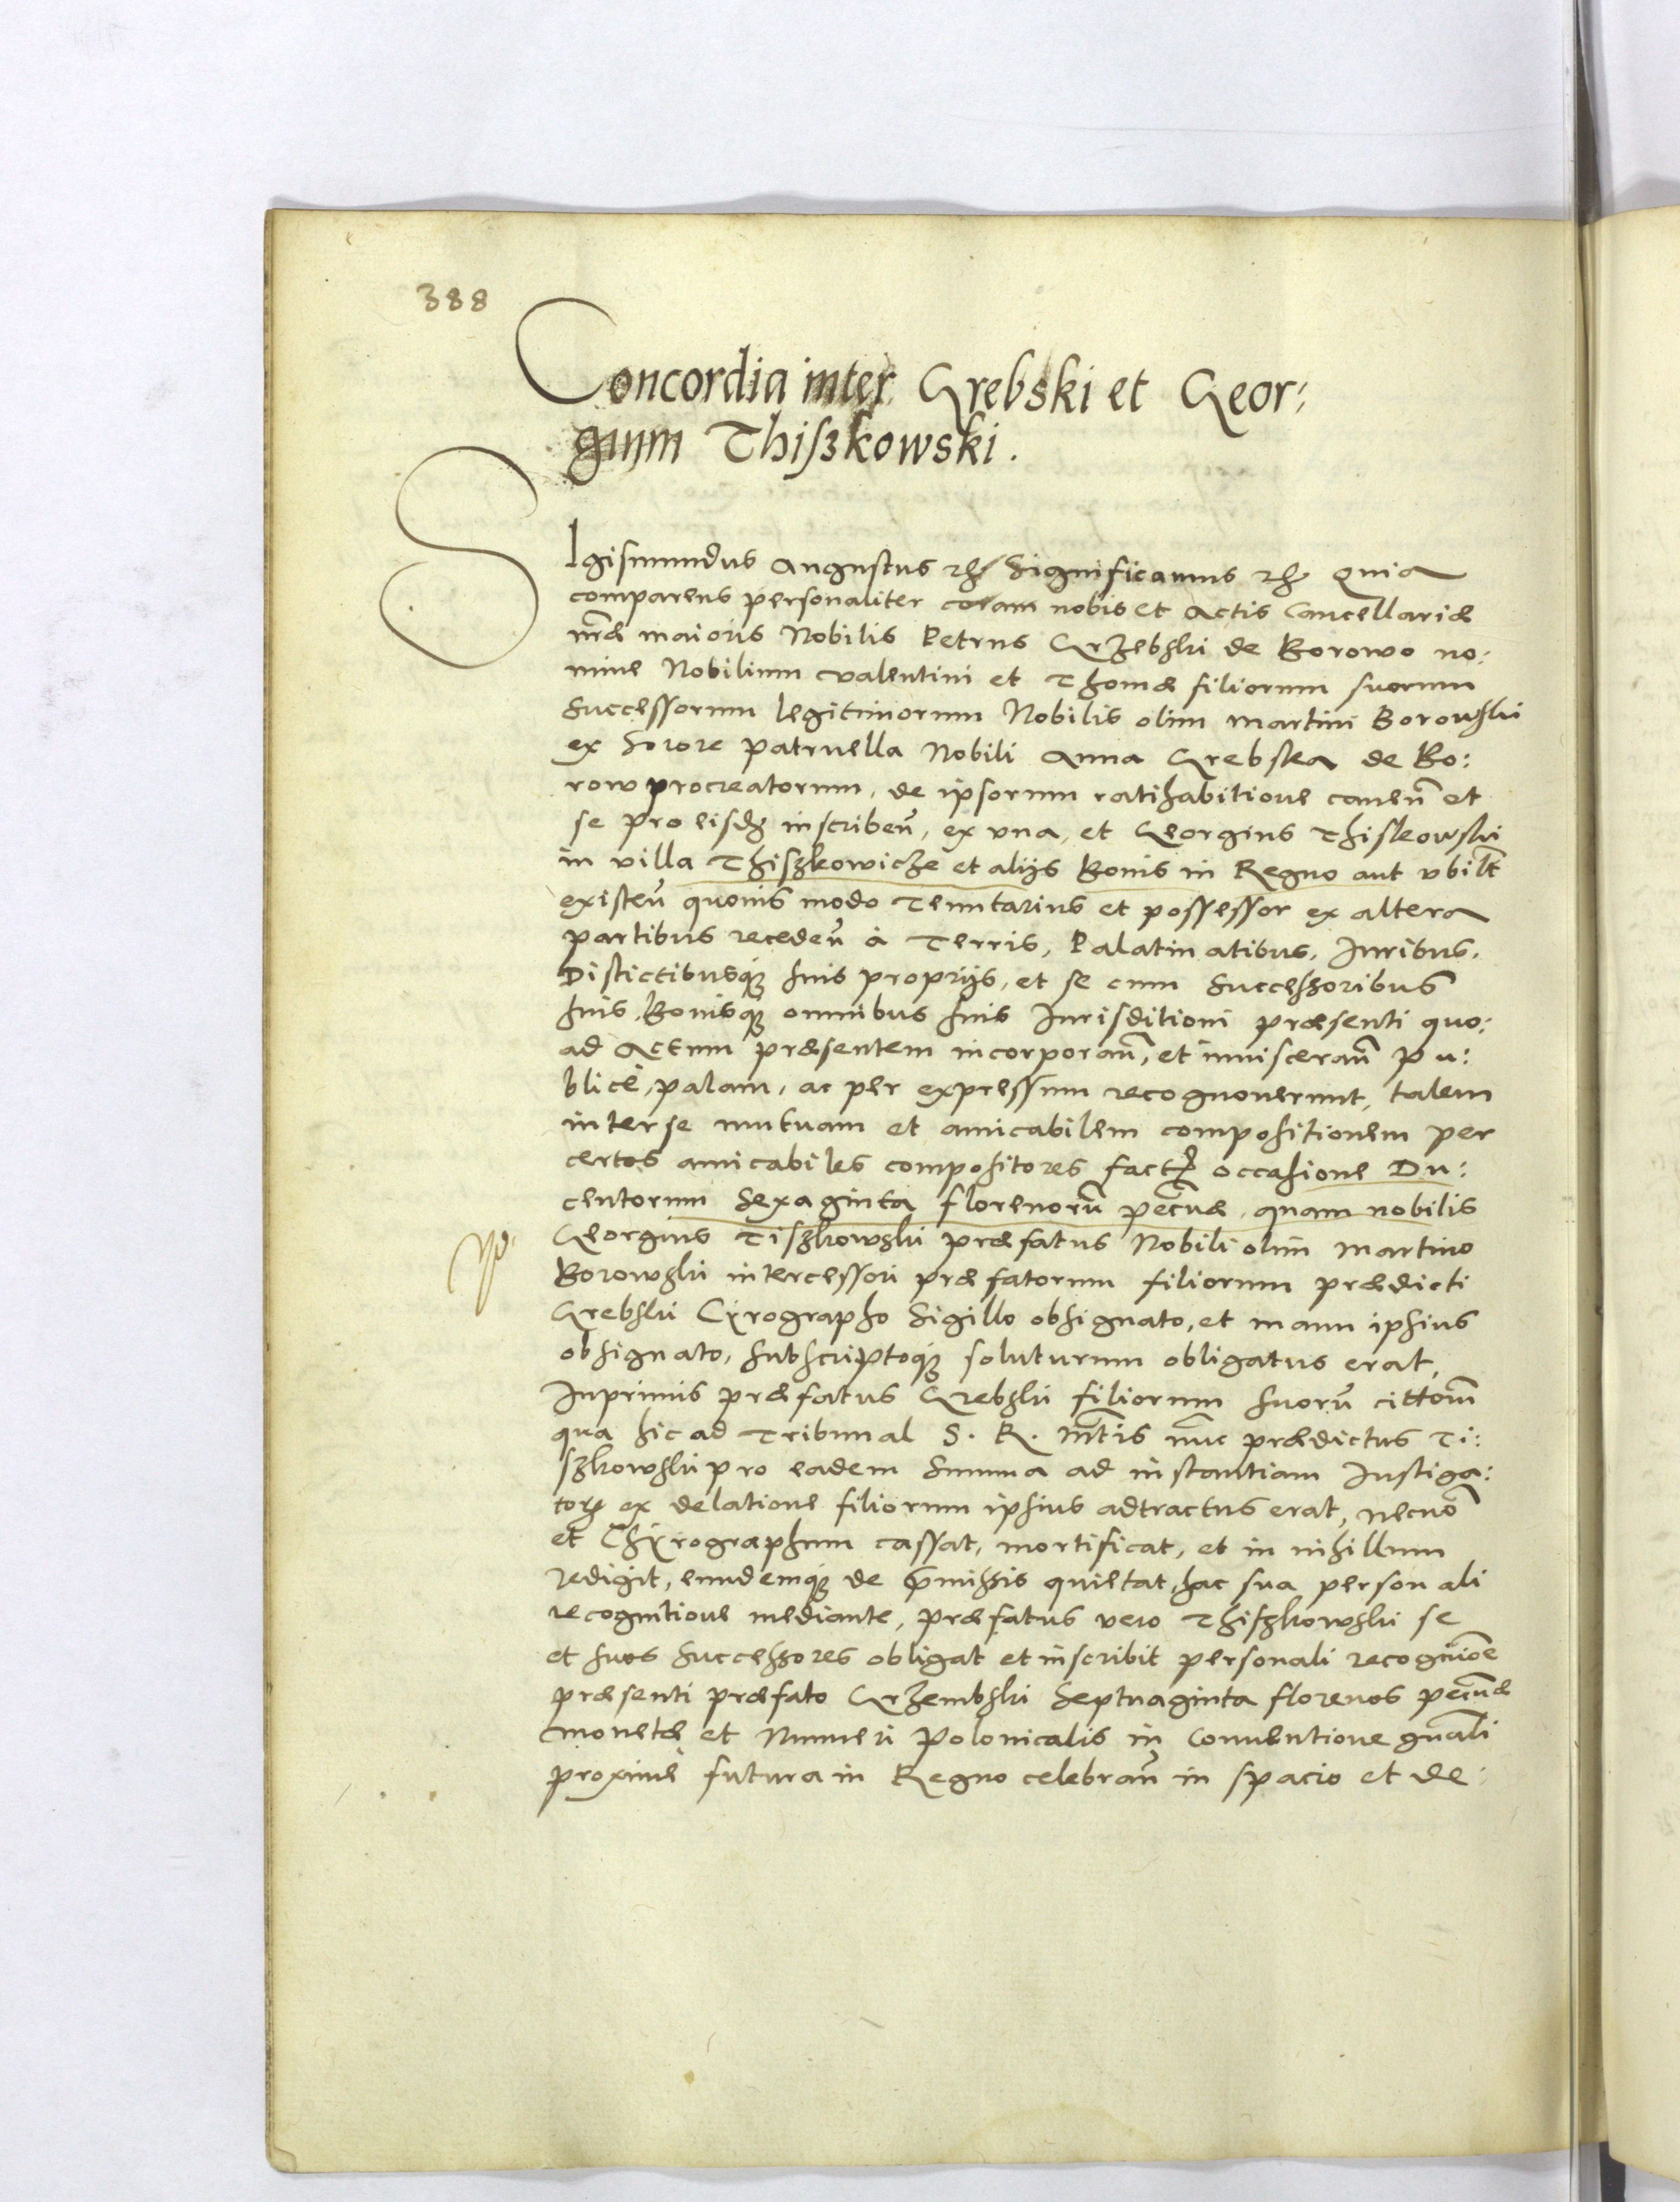 388
Concordia inter Grebski et Geor:
gium Thiszkowski.
SIgismundus Augustus etc Significamus etc Quia
comparens personaliter coram nobis et Actis Cancellariæ
nr̃æ maioris Nobilis Petrus Grzebski de Borowo no:
mine Nobilium Valentini et Thomæ filiorum suorum
Successorum legitimorum Nobilis olim Martini Borowski
ex Sorore patruella Nobili Anna Grebska de Bo:
row procreatorum, de ipsorum ratihabitione caueñ et
se pro eisdẽ inscribeñ, ex vna, et Georgius Thiskowski
in villa Thiszkowicze et alijs Bonis in Regno aut vbilt
existeñ quouis modo Tenutarius et possessor ex altera
partibus recedeñ à Terris, Palatinatibus, Iuribus,
Distictibusq; suis proprijs, et se cum Successoribus
suis, Bonisq; omnibus suis Iurisditioni præsenti quo:
ad Actum præsentem incorporañ, et inuiscerañ pu:
blicè, palam, ac per expressum recognouerunt, talem
inter se mutuam et amicabilem compositionem per
certos amicabiles compositores occasione Du:
centorum Sexaginta florenorũ pecũæ, quam nobilis
Georgius Tiszkowski præfatus Nobili olim Martino
Borowski intercessori præfatorum filiorum prædicti
Grebski Cirographo Sigillo obsignato, et manu ipsius
obsignato, subscriptoq; soluturum obligatus erat,
Inprimis præfatus Grebski filiorum suorũ cittoñ
qua hic ad Tribunal S. R. Mtis nũc prædictus Ti:
szkowski pro eadem Summa ad instantiam Instiga:
toris ex delatione filiorum ipsius adtractus erat, necnõ
et Chirographum cassat, mortificat, et in nihillum
redigit, eundemq; de p̃missis quietat, hac sua personali
recognitione mediante, præfatus vero Thiszkowski se
et suos Successores obligat et inscribit personali recognicõe
præsenti præfato Grzembski Septuaginta florenos pecũæ
monetæ et Numeri Polonicalis in Conuentione gnãli
proximè futura in Regno celebrañ in spacio et de: